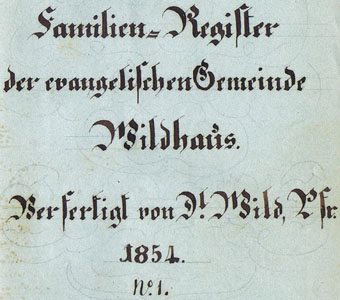 Familien-Register
der evangelischen Gemeinde
Wildhaus.
Verfertigt von Dl. Wild, Pfr.
1854.
No. 1.